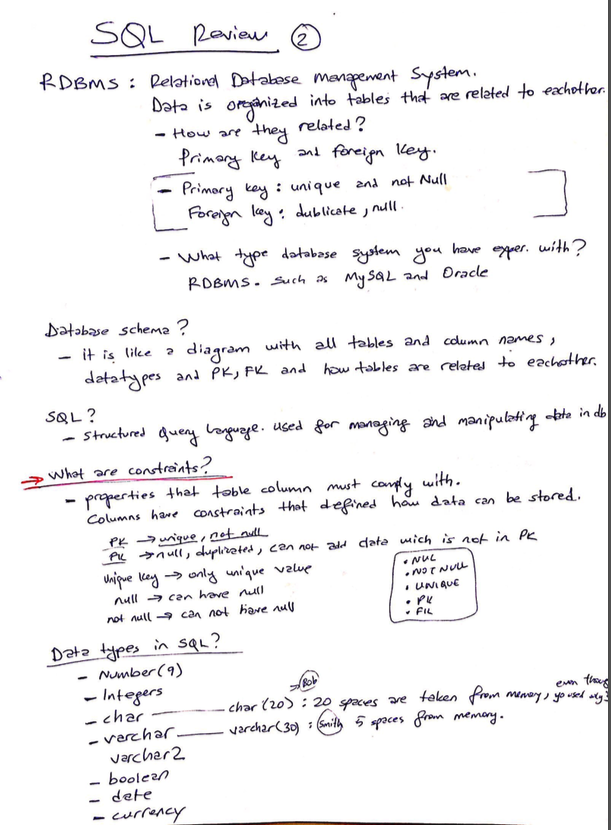 SQL Review ②
RDBMS : Relational Database Management System.
Data is organized into tables that are related to eachother.
- How are they related?
Primary Key and foreign Key.
- Primary key : unique and not Null
Foreign key : dublicate, null.
- What type database system you have exper. with?
RDBMS. Such as MySQL and Oracle
Database schema ?
- it is like a diagram with all tables and column names,
datatypes and PK, FK and how tables are related to eachother.
SQL ?
- Structured Query Language. used for managing and manipulating data in db
→ What are constraints?
- properties that table column must comply with.
Columns have constraints that defined how data can be stored.
PK → unique, not null
FK → null, duplicated, can not add data wich is not in PK
Unique Key → only unique value
null → can have null
not null → can not have null
• NUL
• NOT NULL
• UNIQUE
• PK
• FK
Data types in SQL?
- Number(9)
- Integers
→ Bob
- char — char(20) : 20 spaces are taken from memory, even thoug you used only 3
- varchar — varchar(30) : Smith 5 spaces from memory.
varchar2
- boolean
- date
- currency